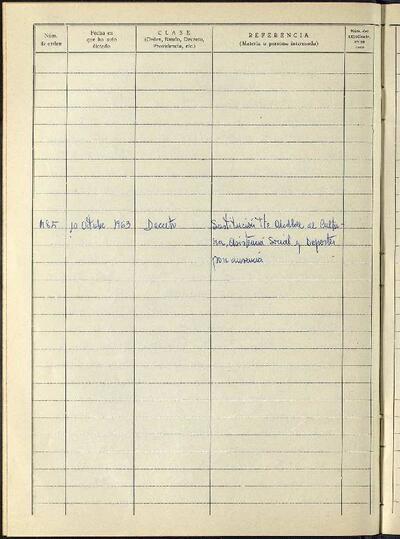 Núm. de orden
Fecha en que ha sido dictado
CLASE
(Orden, Bando, Decreto, Providencia, etc.)
REFERENCIA
(Materia o persona interesada)
Núm. del
10 Octubre 1963 Decreto Sustitución Tte Alcalde de Cultu-
ra, Asistencia Social y Deportes
por ausencia